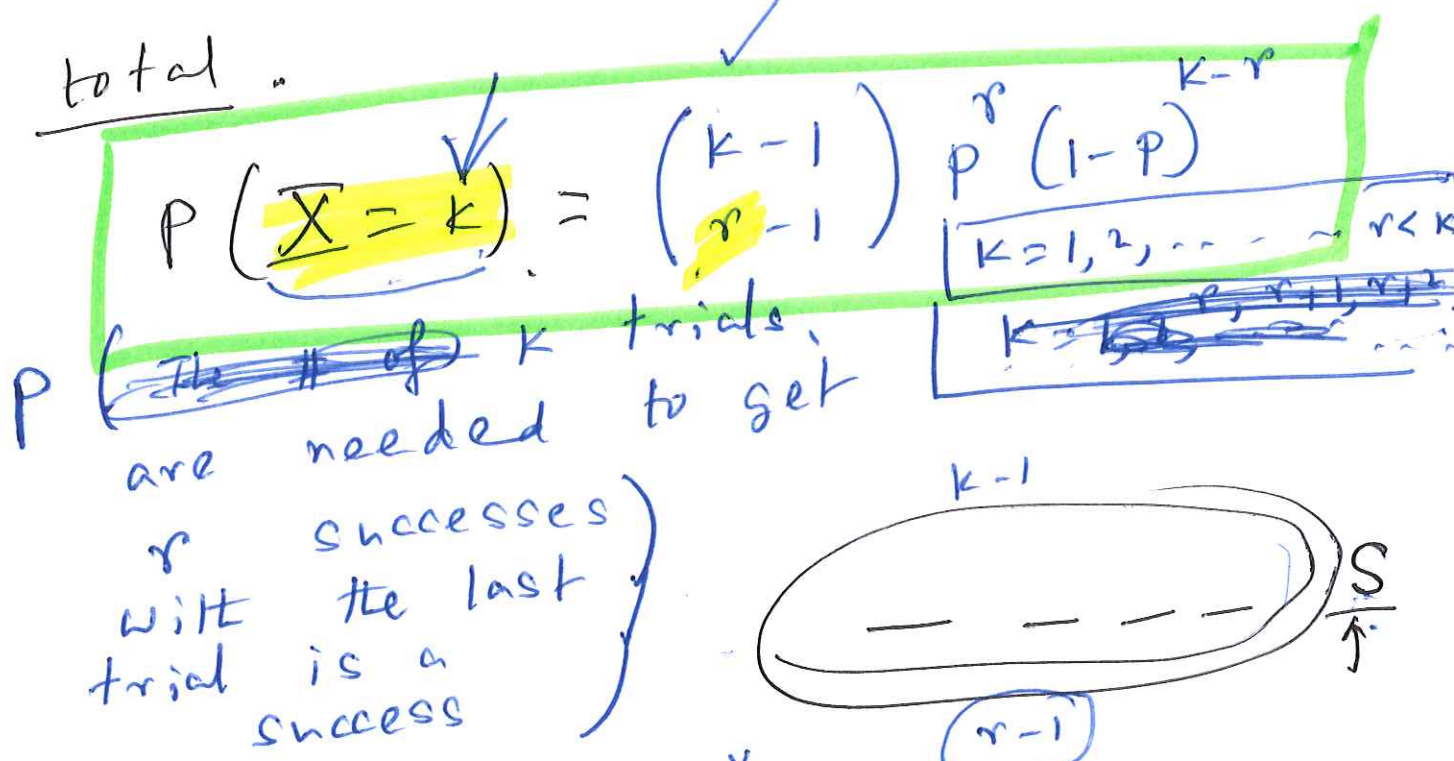 total.
P(X = k) = (k-1 r-1) p^r (1-p)^{k-r}
K=1,2,.... r<k
P(The # of) k trials
are needed to get
K = r, r+1, r+2 ....
r successes
with the last
trial is a
success)
k-1
S
r-1